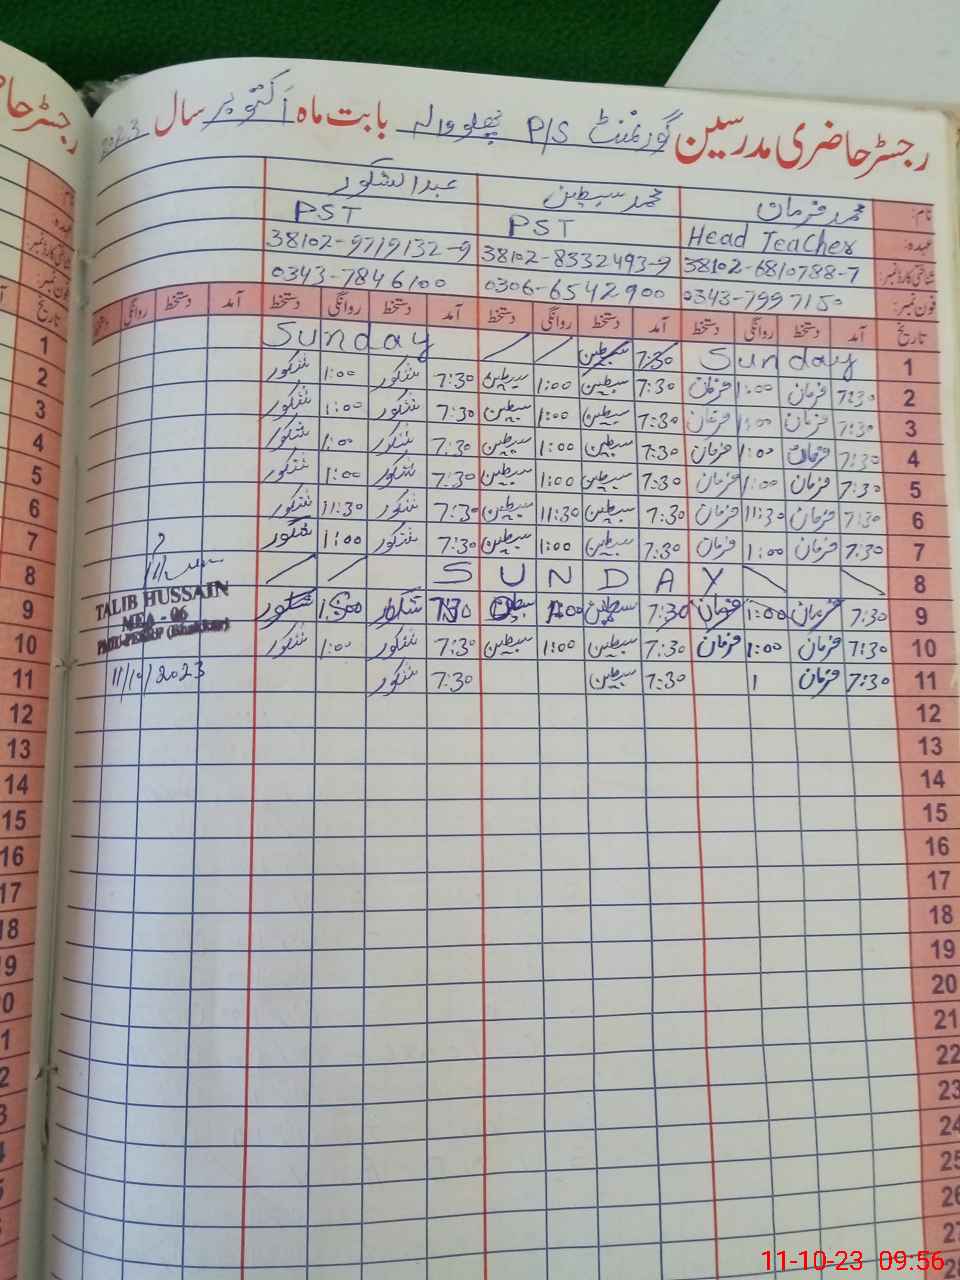 رجسٹر حاضری مدرسین گورنمنٹ P/S بابت ماہ اکتوبر سال 2023
نام: محمد فرمان محمد سبطین عبدالشکور
عہدہ: Head Teacher PST PST
شناختی کارڈ نمبر: 38102-6810788-7 38102-8332493-9 38102-9719132-9
فون نمبر: 0343-7997150 0306-6542900 0343-7846100
تاریخ آمد دستخط روانگی دستخط آمد دستخط روانگی دستخط آمد دستخط روانگی دستخط آمد دستخط روانگی دستخط
1 Sunday 7:30 سبطین Sunday
2 7:30 فرمان 1:00 فرمان 7:30 سبطین 1:00 سبطین 7:30 شکور 1:00 شکور
3 7:30 فرمان 1:00 فرمان 7:30 سبطین 1:00 سبطین 7:30 شکور 1:00 شکور
4 7:30 فرمان 1:00 فرمان 7:30 سبطین 1:00 سبطین 7:30 شکور 1:00 شکور
5 7:30 فرمان 1:00 فرمان 7:30 سبطین 1:00 سبطین 7:30 شکور 1:00 شکور
6 7:30 فرمان 11:30 فرمان 7:30 سبطین 11:30 سبطین 7:30 شکور 11:30 شکور
7 7:30 فرمان 1:00 فرمان 7:30 سبطین 1:00 سبطین 7:30 شکور 1:00 شکور
8 SUNDAY
9 7:30 فرمان 1:00 فرمان 7:30 سبطین 1:00 سبطین 7:30 شکور 1:00 شکور
10 7:30 فرمان 1:00 فرمان 7:30 سبطین 1:00 سبطین 7:30 شکور 1:00 شکور
11 7:30 فرمان 1 7:30 سبطین 7:30 شکور
TALIB HUSSAIN
MEA - 06
11/10/2023
12
13
14
15
16
17
18
19
20
21
22
23
24
25
26
27
11-10-23 09:56